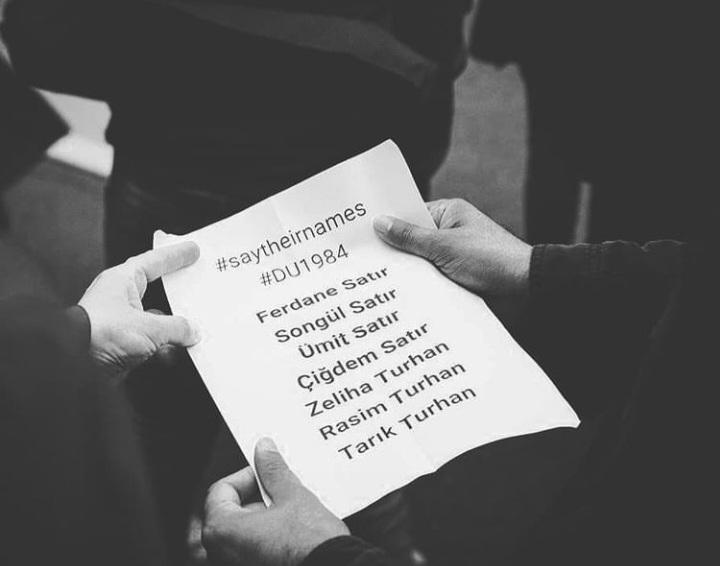 #saytheirnames
#DU1984
Ferdane Satır
Songül Satır
Ümit Satır
Çiğdem Satır
Zeliha Turhan
Rasim Turhan
Tarık Turhan